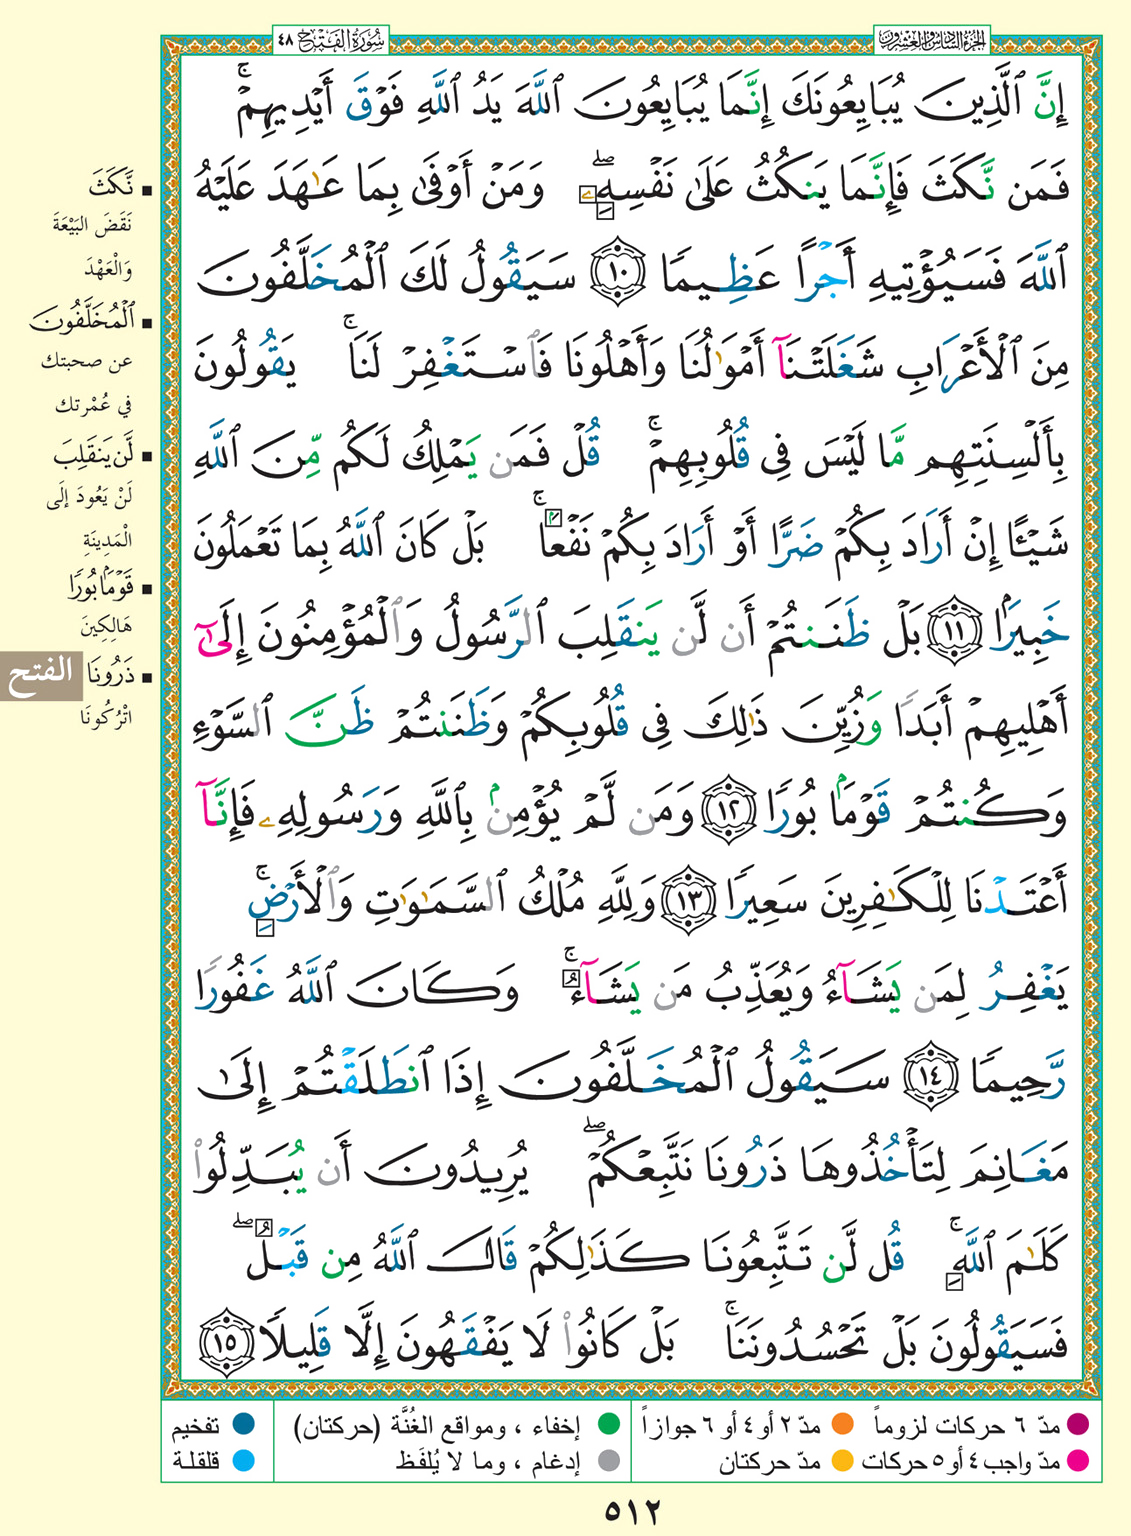 الجزء السادس والعشرون
سورة الفتح ٤٨
إِنَّ ٱلَّذِينَ يُبَايِعُونَكَ إِنَّمَا يُبَايِعُونَ ٱللَّهَ يَدُ ٱللَّهِ فَوْقَ أَيْدِيهِمْ ۚ
فَمَن نَّكَثَ فَإِنَّمَا يَنكُثُ عَلَىٰ نَفْسِهِۦ ۖ وَمَنْ أَوْفَىٰ بِمَا عَـٰهَدَ عَلَيْهُ
ٱللَّهَ فَسَيُؤْتِيهِ أَجْرًا عَظِيمًا ١٠ سَيَقُولُ لَكَ ٱلْمُخَلَّفُونَ
مِنَ ٱلْأَعْرَابِ شَغَلَتْنَآ أَمْوَٰلُنَا وَأَهْلُونَا فَٱسْتَغْفِرْ لَنَا ۚ يَقُولُونَ
بِأَلْسِنَتِهِم مَّا لَيْسَ فِى قُلُوبِهِمْ ۚ قُلْ فَمَن يَمْلِكُ لَكُم مِّنَ ٱللَّهِ
شَيْـًٔا إِنْ أَرَادَ بِكُمْ ضَرًّا أَوْ أَرَادَ بِكُمْ نَفْعًۢا ۚ بَلْ كَانَ ٱللَّهُ بِمَا تَعْمَلُونَ
خَبِيرًۢا ١١ بَلْ ظَنَنتُمْ أَن لَّن يَنقَلِبَ ٱلرَّسُولُ وَٱلْمُؤْمِنُونَ إِلَىٰٓ
أَهْلِيهِمْ أَبَدًا وَزُيِّنَ ذَٰلِكَ فِى قُلُوبِكُمْ وَظَنَنتُمْ ظَنَّ ٱلسَّوْءِ
وَكُنتُمْ قَوْمًۢا بُورًا ١٢ وَمَن لَّمْ يُؤْمِنۢ بِٱللَّهِ وَرَسُولِهِۦ فَإِنَّآ
أَعْتَدْنَا لِلْكَـٰفِرِينَ سَعِيرًا ١٣ وَلِلَّهِ مُلْكُ ٱلسَّمَـٰوَٰتِ وَٱلْأَرْضِ ۚ
يَغْفِرُ لِمَن يَشَآءُ وَيُعَذِّبُ مَن يَشَآءُ ۚ وَكَانَ ٱللَّهُ غَفُورًا
رَّحِيمًا ١٤ سَيَقُولُ ٱلْمُخَلَّفُونَ إِذَا ٱنطَلَقْتُمْ إِلَىٰ
مَغَانِمَ لِتَأْخُذُوهَا ذَرُونَا نَتَّبِعْكُمْ ۖ يُرِيدُونَ أَن يُبَدِّلُوا۟
كَلَـٰمَ ٱللَّهِ ۚ قُل لَّن تَتَّبِعُونَا كَذَٰلِكُمْ قَالَ ٱللَّهُ مِن قَبْلُ ۖ
فَسَيَقُولُونَ بَلْ تَحْسُدُونَنَا ۚ بَلْ كَانُوا۟ لَا يَفْقَهُونَ إِلَّا قَلِيلًا ١٥
نَّكَثَ
نَقَضَ البَيْعَةَ
وَالْعَهْدَ
ٱلْمُخَلَّفُونَ
عن صحبتك
في عُمْرتك
لَّن يَنقَلِبَ
لَنْ يَعُودَ إلَى
الْمَدِينَةِ
قَوْمًۢا بُورًا
هَالِكِينَ
ذَرُونَا
اتْرُكُونَا
الفتح
مدّ ٦ حركات لزوماً
مدّ ٢ أو ٤ أو ٦ جوازاً
إخفاء ، ومواقع الغُنَّة (حركتان)
تفخيم
مدّ واجب ٤ أو ٥ حركات
مدّ حركتان
إدغام ، وما لا يُلفَظ
قلقلة
٥١٢